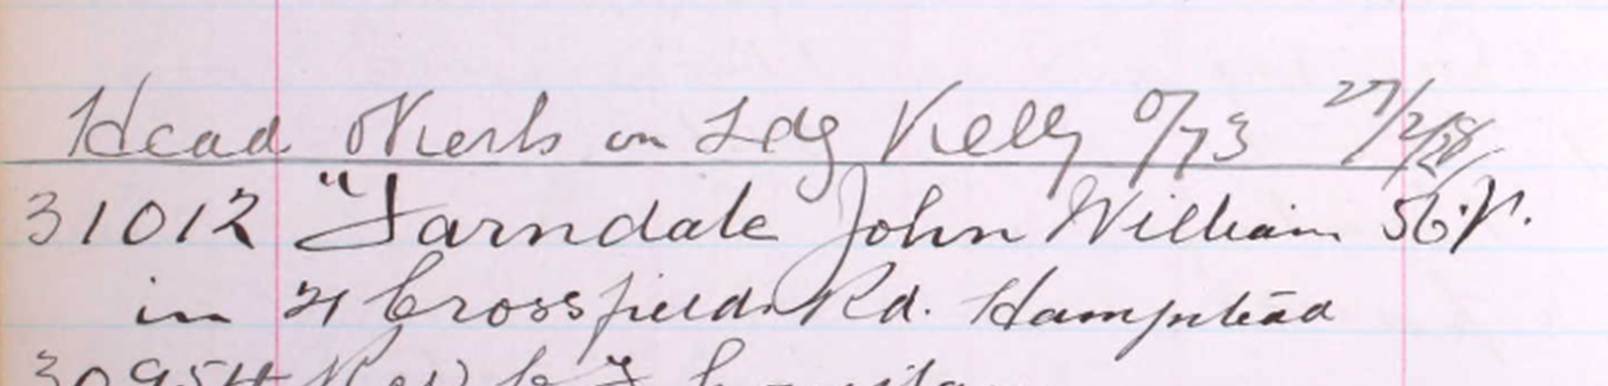 Head Kerb on Ldg Kelly 0/73 27/2/28
31012 "Farndale John William 56 yr.
in 21 Crossfield Rd. Hampstead
30954